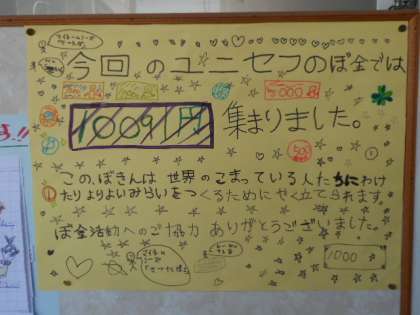 今回のユニセフのぼ金では
10091円 集まりました。
この、ぼきんは世界のこまっている人たちにわけ
たりよりよいみらいをつくるためにやく立てられます。
ぼ金活動へのご協力ありがとうございました。
1000